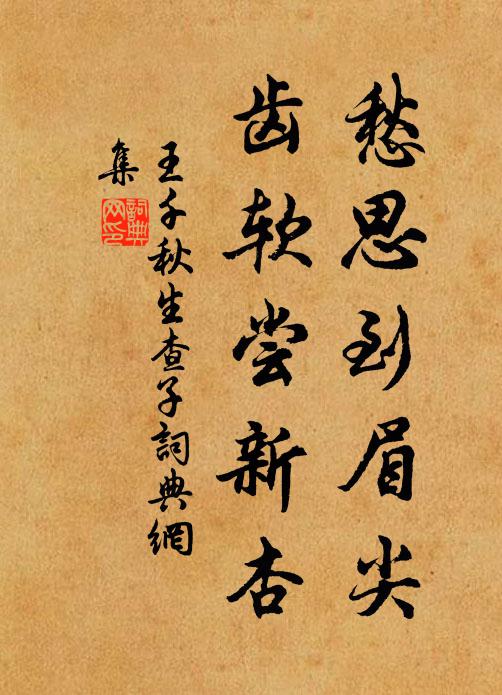 愁思到眉尖
齿软尝新杏
王千秋生查子詞典網
集
詞典網印